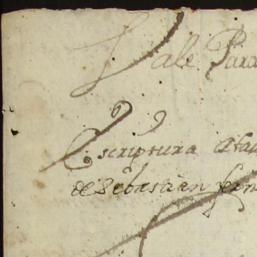 Vale Para
Escriptura
de Sebastian fern